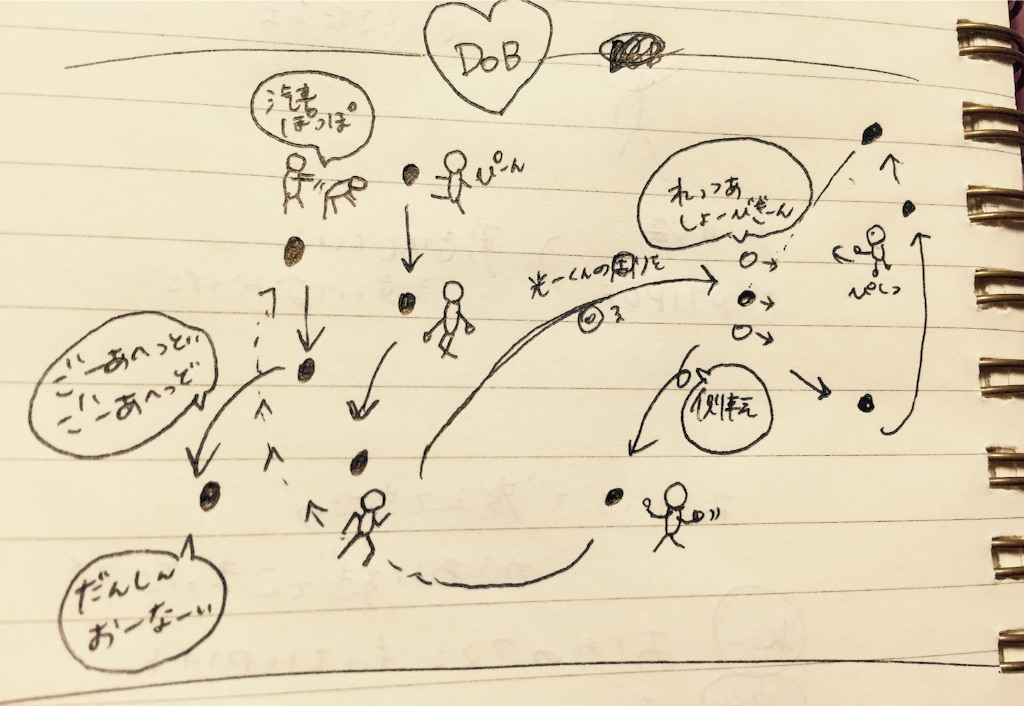 DoB
汽車
ぽっぽ
ぴーん
れっつあ
しょーびぎーん
光一くんの周りを
る
ぴしっ
ごーあへっど
ごーあへっど
側転
だんしん
おーなーい